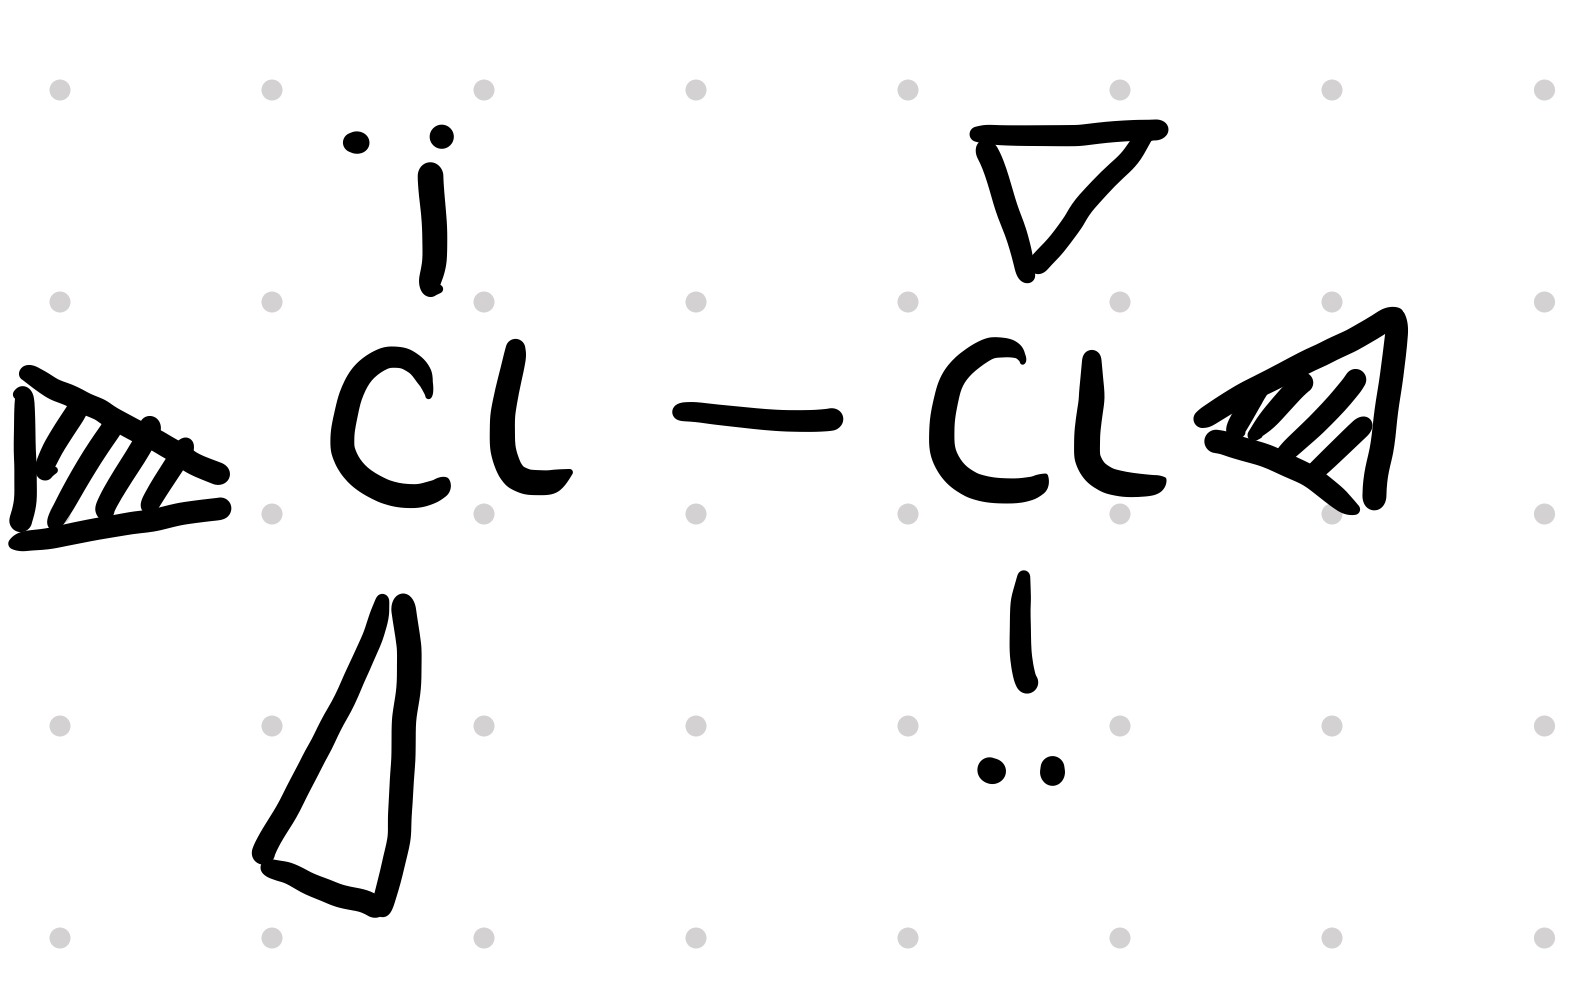 Cl — Cl